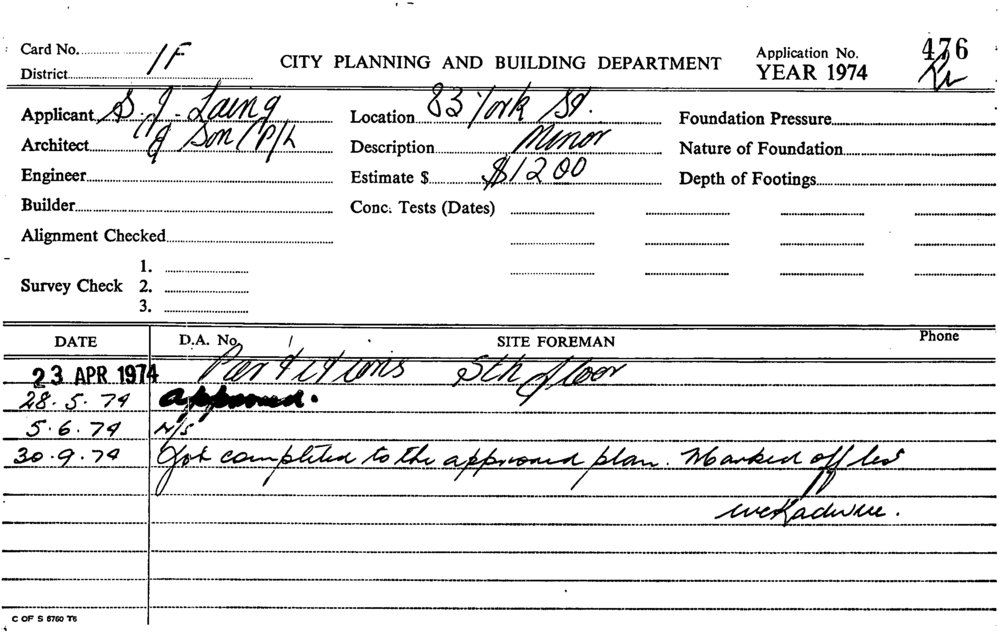 Card No. 1F
District
CITY PLANNING AND BUILDING DEPARTMENT
Application No. 476
YEAR 1974
Applicant S. J. Laing
Location 83 York St.
Foundation Pressure
Architect & Son P/L
Description Minor
Nature of Foundation
Engineer
Estimate $ $1200
Depth of Footings
Builder
Conc. Tests (Dates)
Alignment Checked
Survey Check
1.
2.
3.
DATE D.A. No. SITE FOREMAN Phone
23 APR 1974 Partitions 5th floor
28.5.74 approved.
5.6.74 N/S
30.9.74 Job completed to the approved plan. Marked off
C OF S 5760 T6